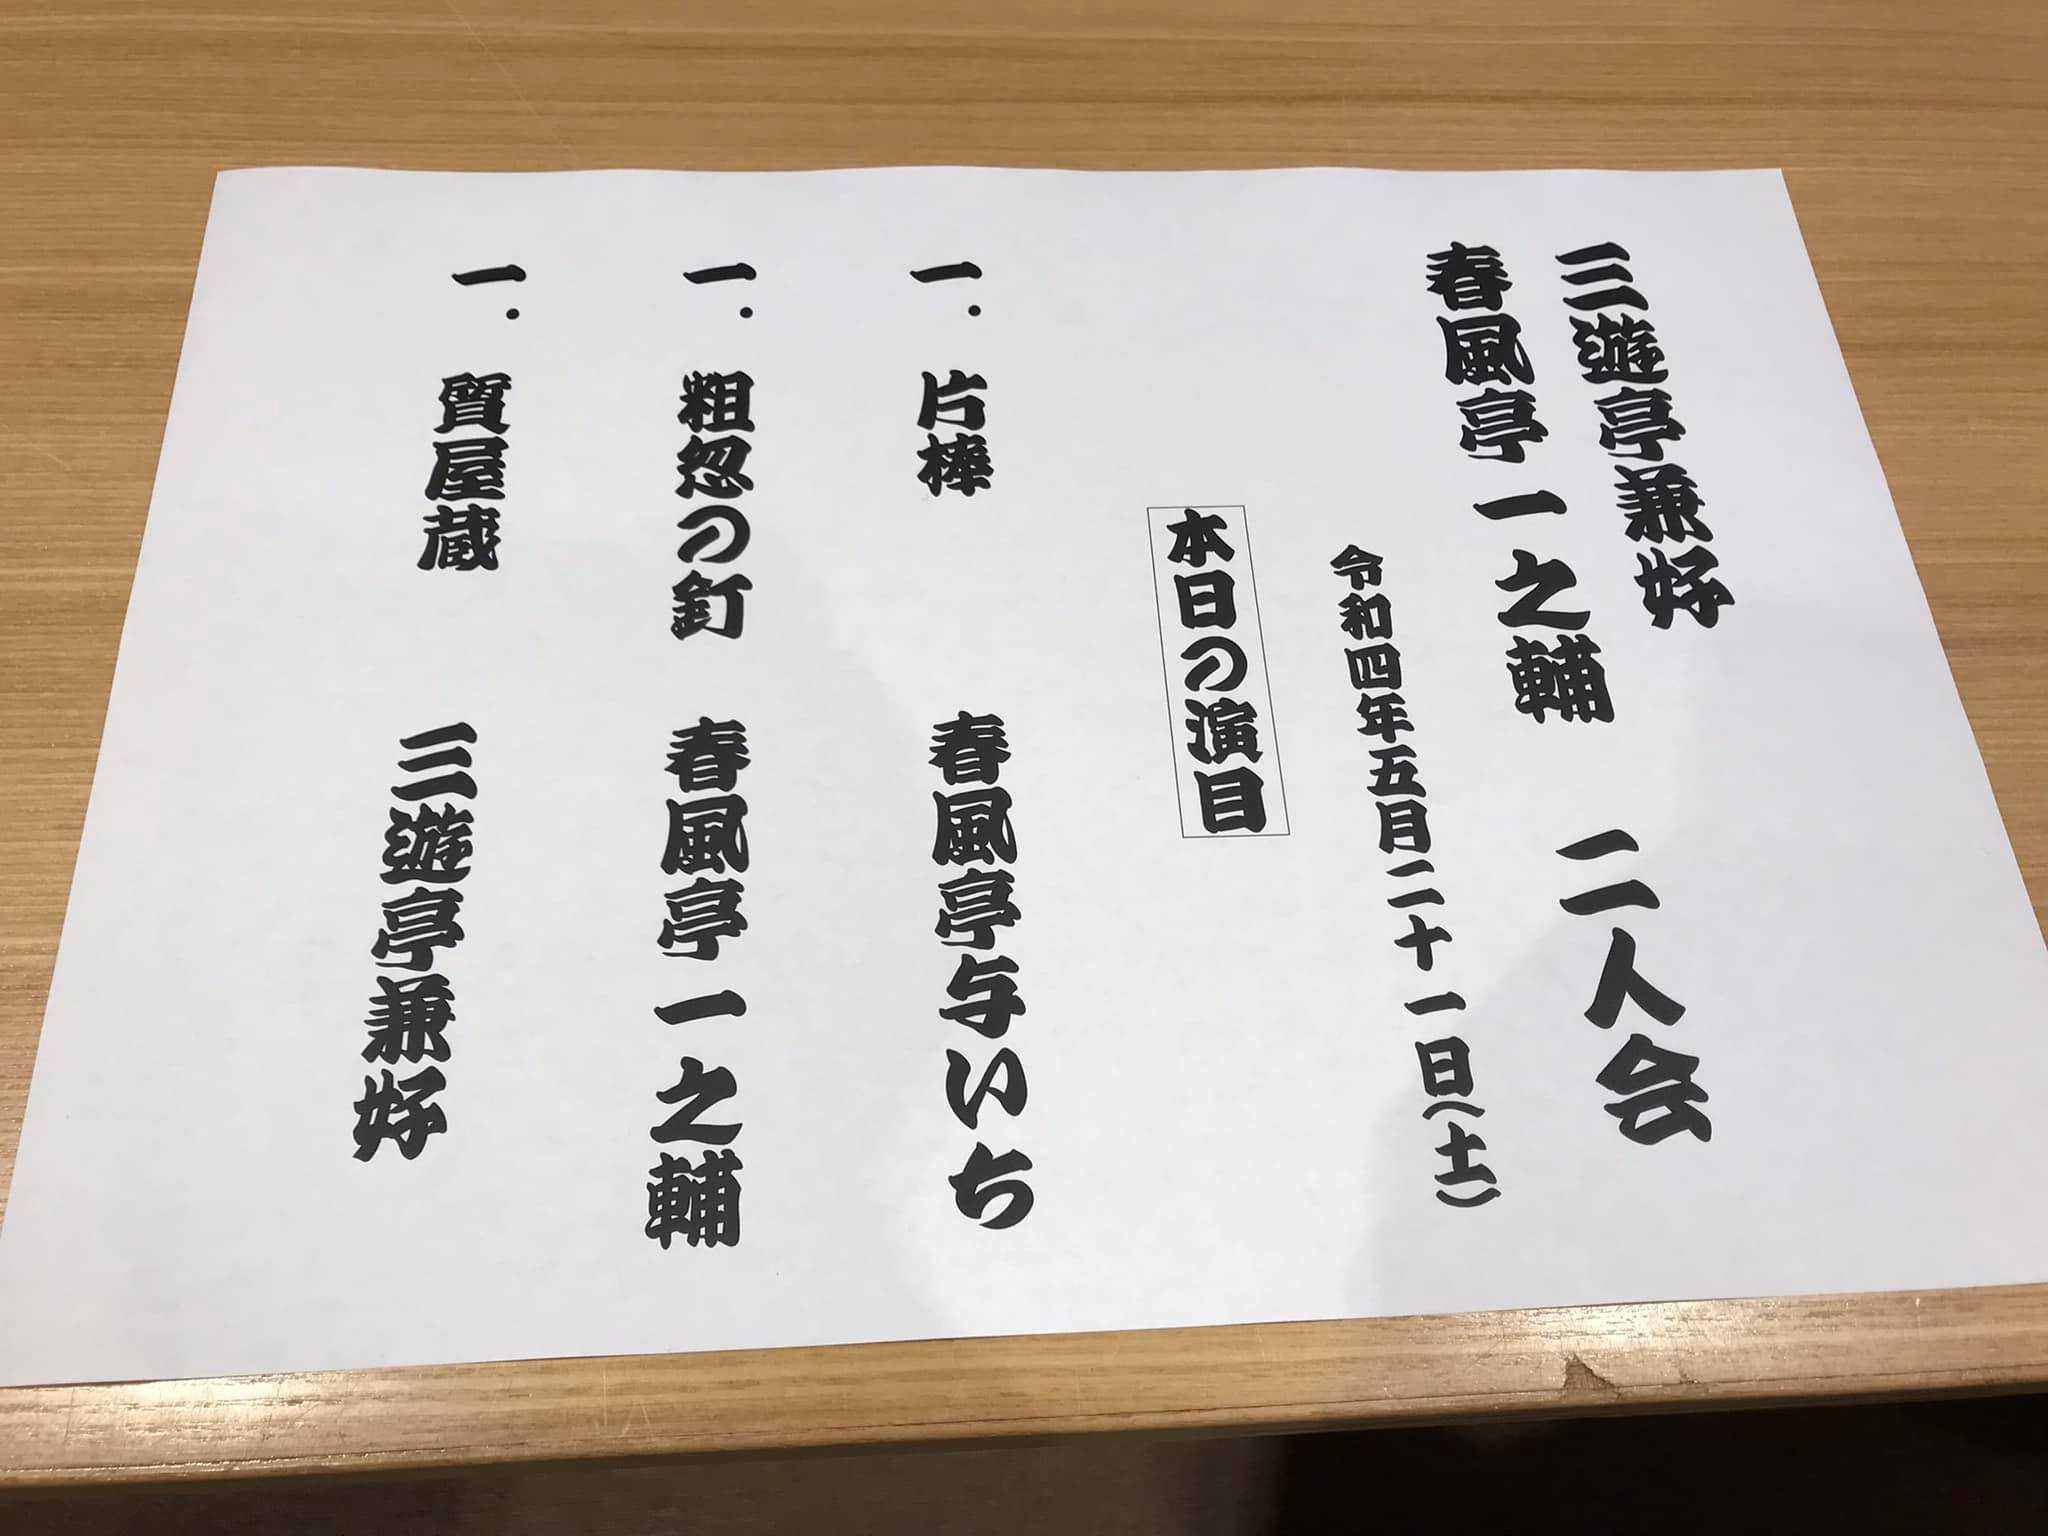 三遊亭兼好
春風亭一之輔 二人会
令和四年五月二十一日(土)
本日の演目
一. 片棒 春風亭与いち
一. 粗忽の釘 春風亭一之輔
一. 質屋蔵 三遊亭兼好